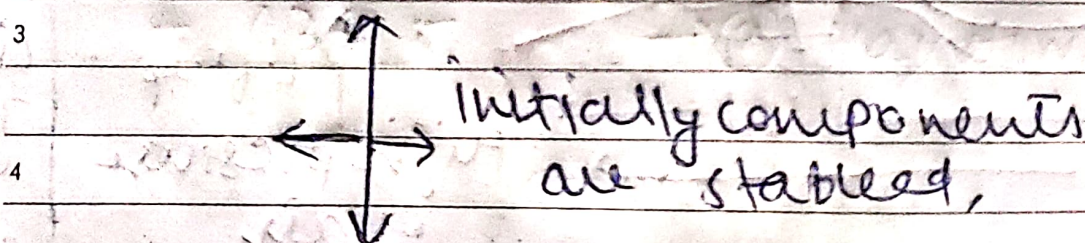 3
initially components
4
are stableed,